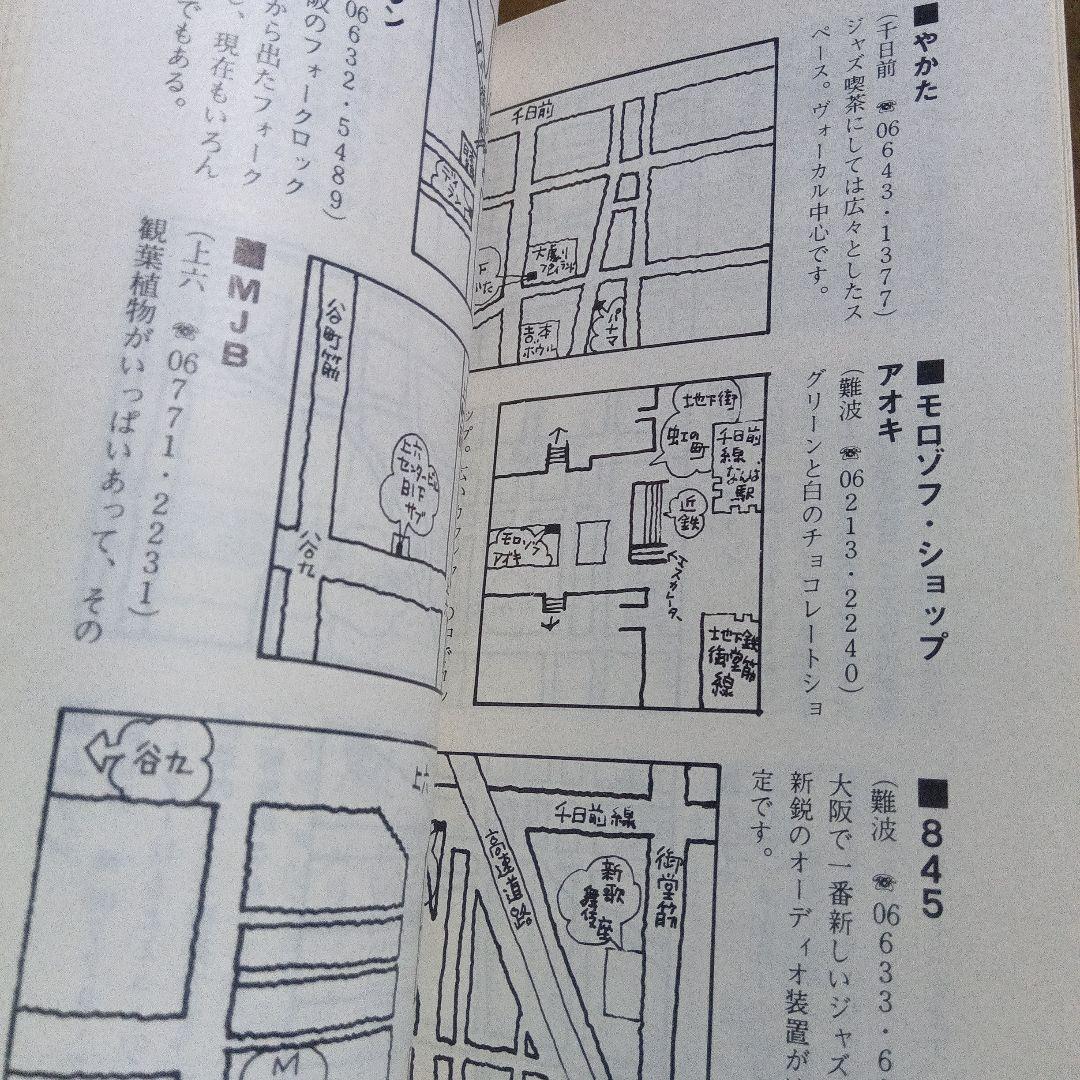 ■やかた
（千日前 ☎06643・1377）
ジャズ喫茶にしては広々としたス
ペース。ヴォーカル中心です。
千日前
大劇
吉本
ボウル
パナマ
■モロゾフ・ショップ
アオキ
（難波 ☎06213・2240）
グリーンと白のチョコレートショ
地下街
虹の町
千日前
線
なんば
駅
近
鉄
モロゾフ
アオキ
エスカレータ
地下鉄
御堂筋
線
■845
（難波 ☎0633・6
大阪で一番新しいジャズ
新鋭のオーディオ装置が
定です。
上六
千日前線
高速道路
御堂筋
新歌
舞伎座
ン
0632・5489）
阪のフォークロック
から出たフォーク
し、現在もいろん
でもある。
ディラン
■MJB
（上六 ☎06771・2231）
観葉植物がいっぱいあって、その
谷町筋
谷九
上六
センタービル
B1F
サブ
谷九
M